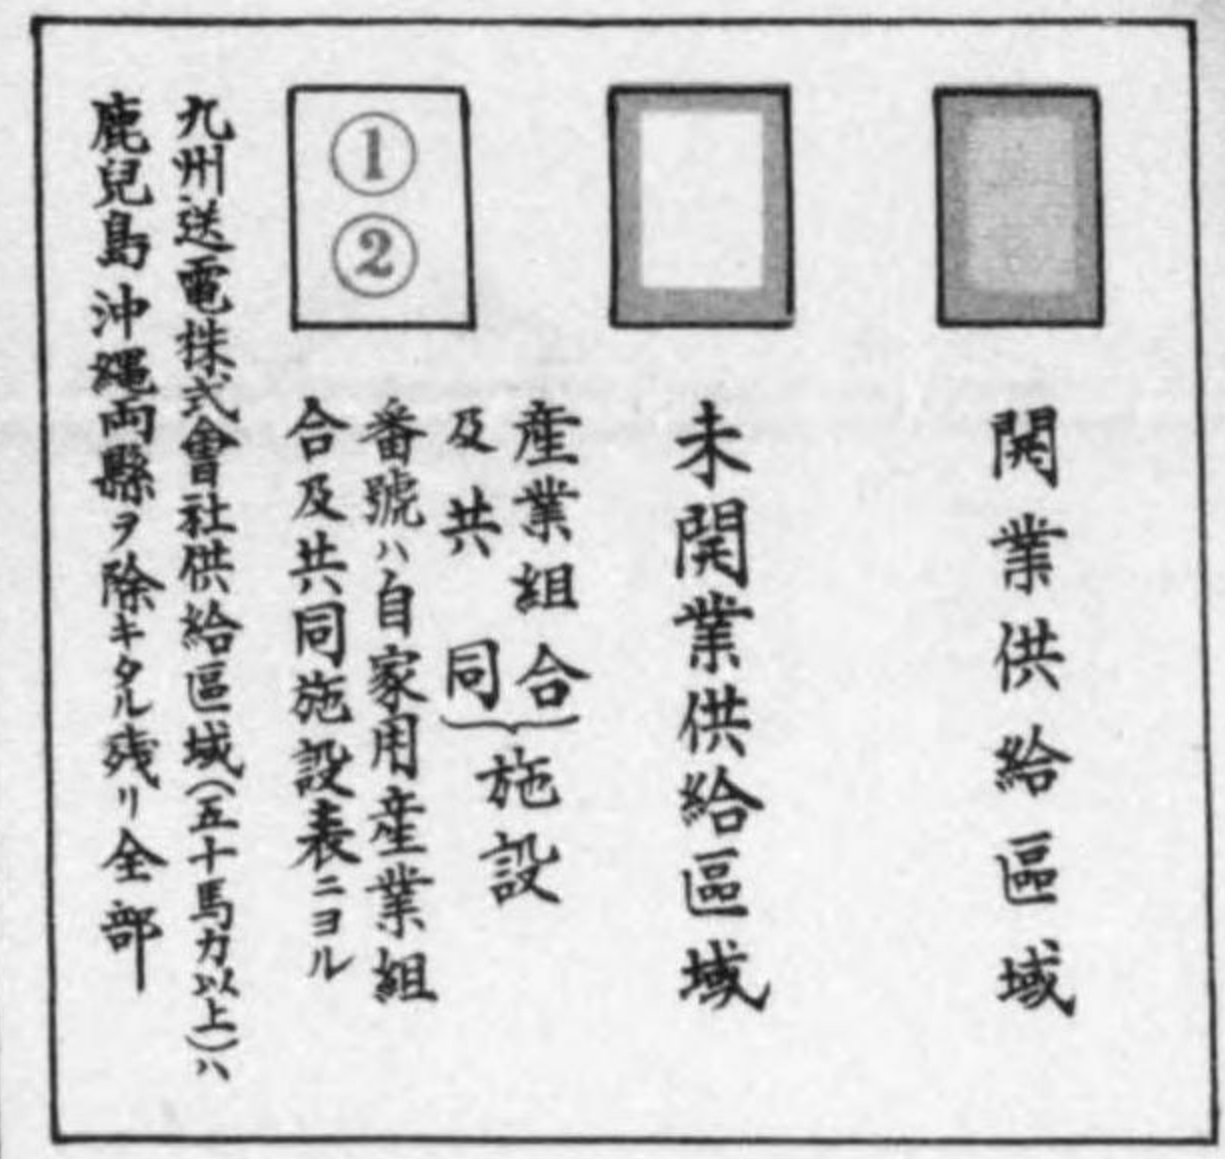 開業供給區域
未開業供給區域
①
②
産業組合
及共同
施設
番號ハ自家用産業組
合及共同施設表ニヨル
九州送電株式會社供給區域(五十馬力以上)ハ
鹿兒島沖縄両縣ヲ除キタル残リ全部